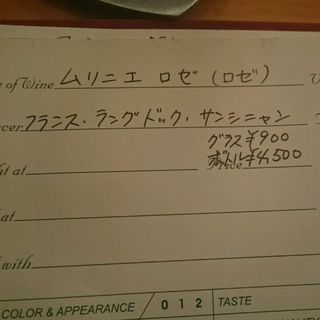 e of Wine ムリニエ ロゼ (ロゼ)
cer フランス、ラングドック、サンシニャン
グラス ¥900
ht at Price ボトル ¥4,500
at
with
COLOR & APPEARANCE / 0 1 2 TASTE